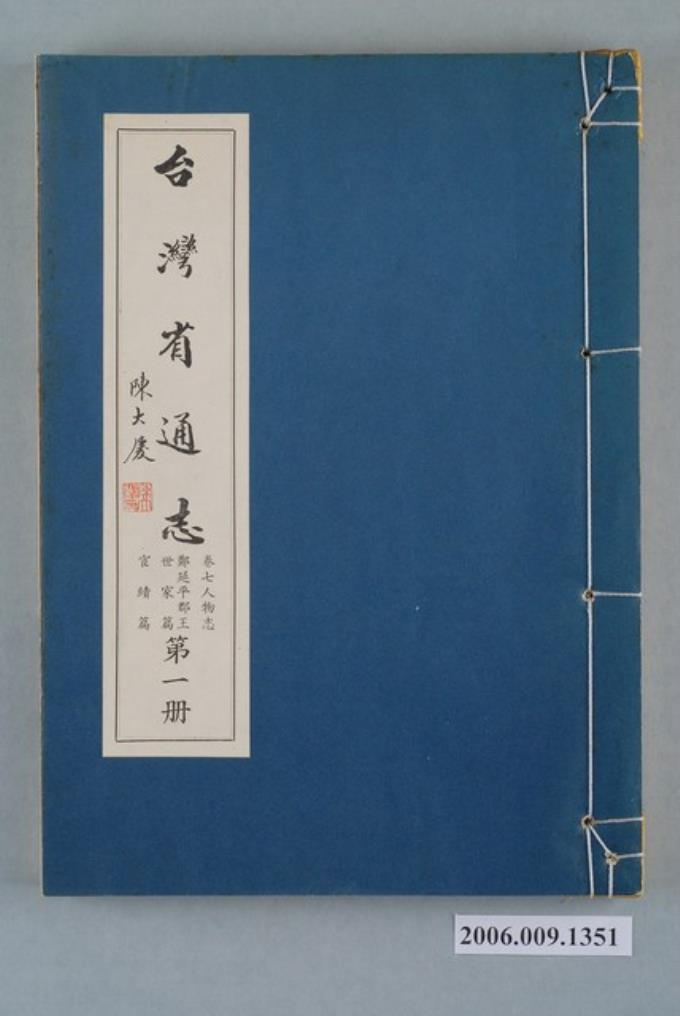 台灣省通志
陳大慶
卷七人物志
鄭延平郡王
世家篇
宦績篇
第一册
2006.009.1351